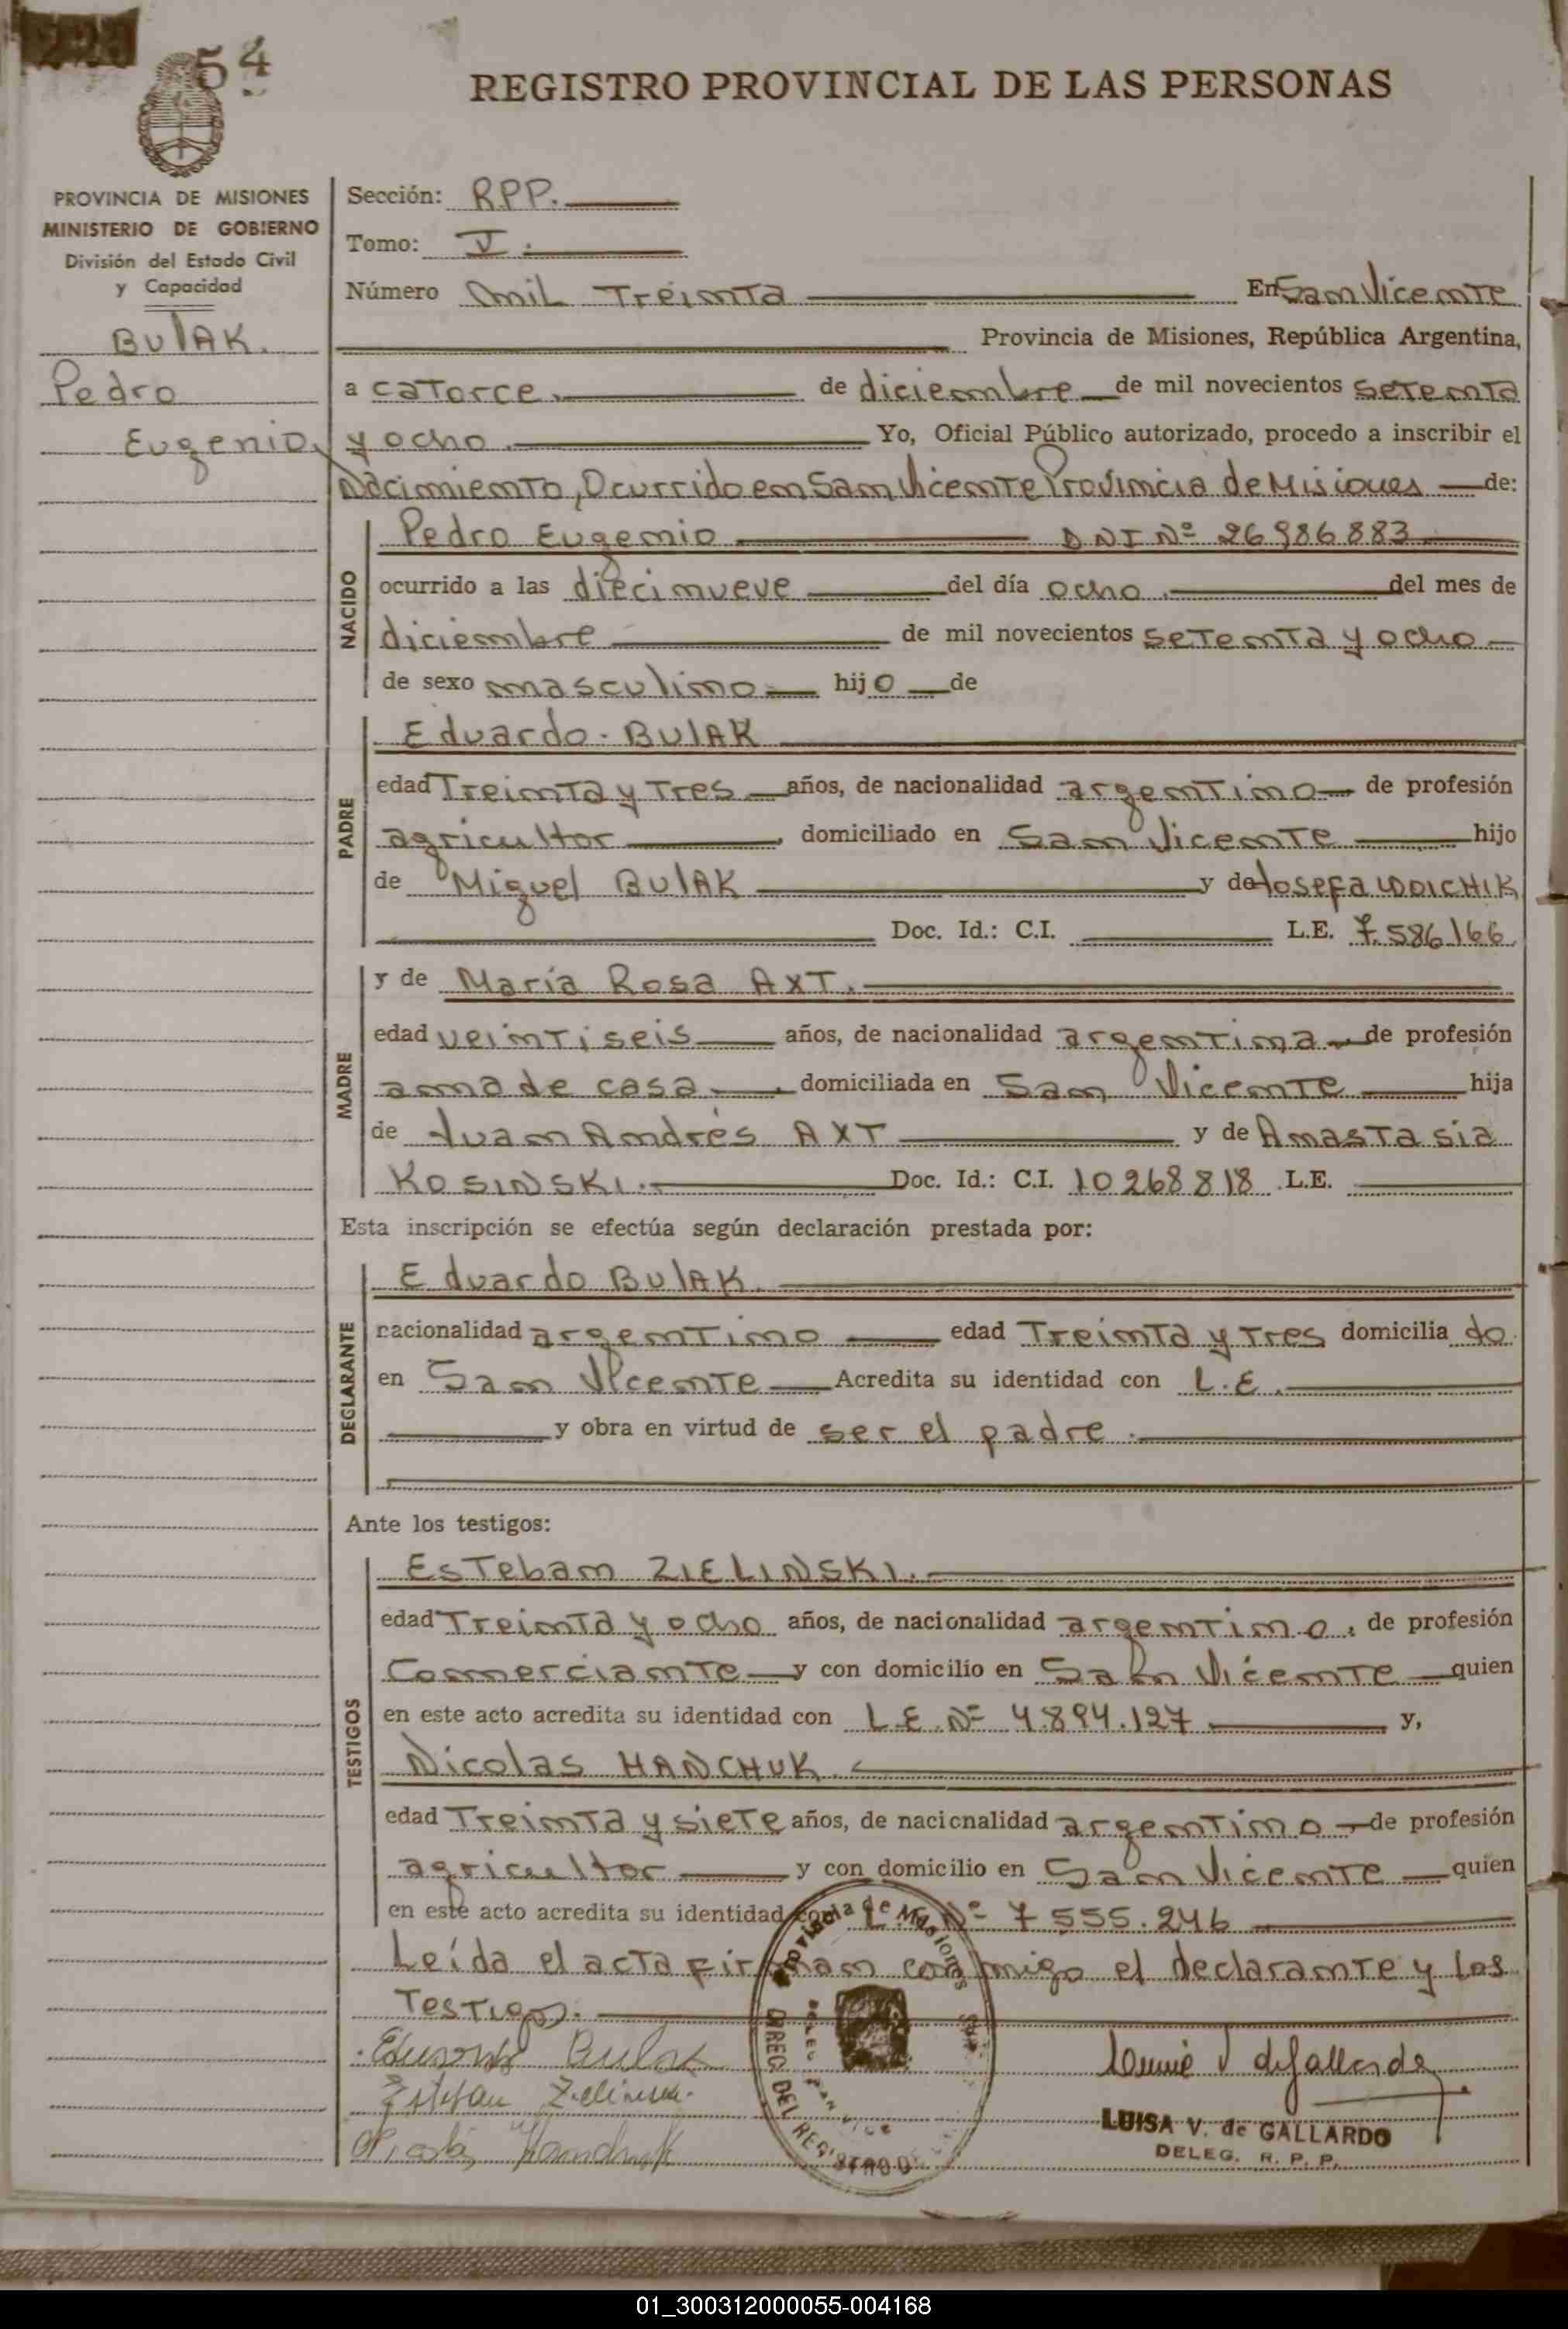 54
REGISTRO PROVINCIAL DE LAS PERSONAS
PROVINCIA DE MISIONES
MINISTERIO DE GOBIERNO
División del Estado Civil
y Capacidad
BULAK.
Pedro
Eugenio
Sección: R.P.P.
Tomo: V.
Número mil Treinta En San Vicente
Provincia de Misiones, República Argentina,
a catorce de diciembre de mil novecientos setenta
y ocho. Yo, Oficial Público autorizado, procedo a inscribir el
Nacimiento, Ocurrido en San Vicente Provincia de Misiones de:
NACIDO
Pedro Eugenio DNI Nº 26986883
ocurrido a las diecinueve del día ocho del mes de
diciembre de mil novecientos setenta y ocho
de sexo masculino hijo de
PADRE
Eduardo BULAK
edad Treinta y Tres años, de nacionalidad argentino de profesión
agricultor, domiciliado en San Vicente hijo
de Miguel BULAK y de Josefa WOICHIK
Doc. Id.: C.I. L.E. 7.586166
MADRE
y de María Rosa AXT.
edad veintiseis años, de nacionalidad argentina de profesión
ama de casa domiciliada en San Vicente hija
de Juan Andrés AXT y de Anastasia
KOSINSKI. Doc. Id.: C.I. 10268818 L.E.
Esta inscripción se efectúa según declaración prestada por:
DECLARANTE
Eduardo BULAK.
nacionalidad argentino edad Treinta y Tres domicilia do
en San Vicente Acredita su identidad con L.E.
y obra en virtud de ser el padre.
Ante los testigos:
TESTIGOS
Esteban ZIELINSKI.
edad Treinta y ocho años, de nacionalidad argentino, de profesión
Comerciante y con domicilio en San Vicente quien
en este acto acredita su identidad con L.E. Nº 4.894.127 y,
Nicolas HANCHUK.
edad Treinta y siete años, de nacionalidad argentino de profesión
agricultor y con domicilio en San Vicente quien
en este acto acredita su identidad con L. Nº 7555.246
Leída el acta firman conmigo el declarante y los
Testigos.
Eduardo Bulak
Esteban Zielinski
Nicolas Hanchuk
Provincia de Misiones
DIREC. DEL REGISTRO
LUISA V. de GALLARDO
DELEG. R. P. P.
01_300312000055-004168